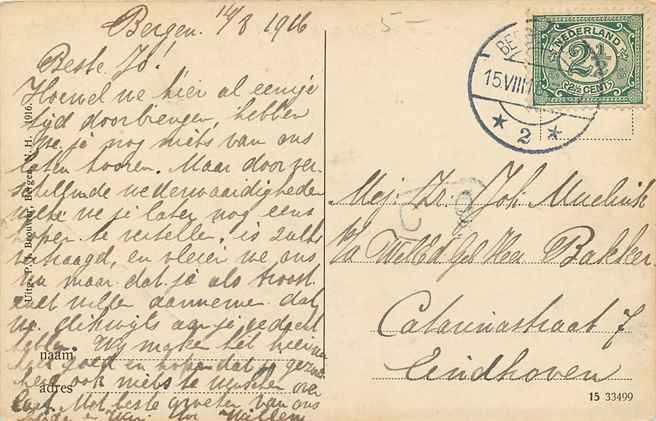 Bergen 14/8 1916
Beste Jo!
Hoewel we hier al eenige
tijd doorbrengen, hebben
we je nog niets van ons
laten hooren. Maar door ver-
schillende wederwaardigheden
welke we je later nog eens
hopen te vertellen, is zulks
vertraagd, en vleien we ons
nu maar dat je als troost
zult willen aannemen dat
we dikwijls aan je gedacht
hebben. Wij maken het
goed en hopen dat
ook niets te wenschen over
laat. Met beste groeten van ons
Willem
naam
adres
Uitg. P. N. Brouwer, Bergen N. H. 1916.
5-
BER
15.VIII.1
2
NEDERLAND
2½
(2½ CENT)
Mej. Joh.
p/a WelEd Geb Heer Bakker
Catarinastraat 7
Eindhoven
15 33499